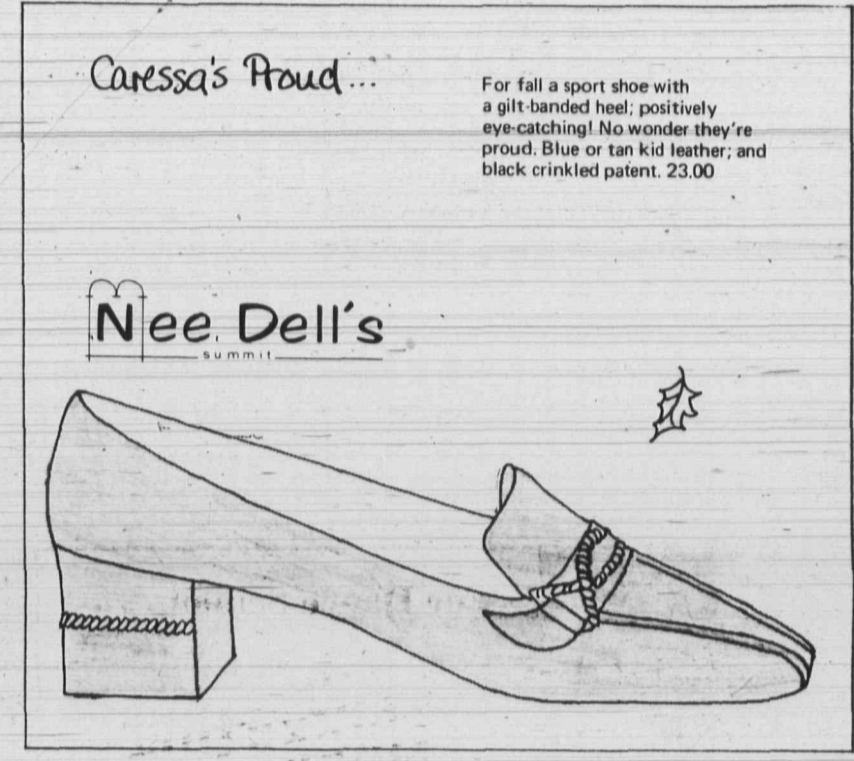 Caressa's Proud...
For fall a sport shoe with
a gilt-banded heel; positively
eye-catching! No wonder they're
proud. Blue or tan kid leather; and
black crinkled patent. 23.00
Nee Dell's
summit